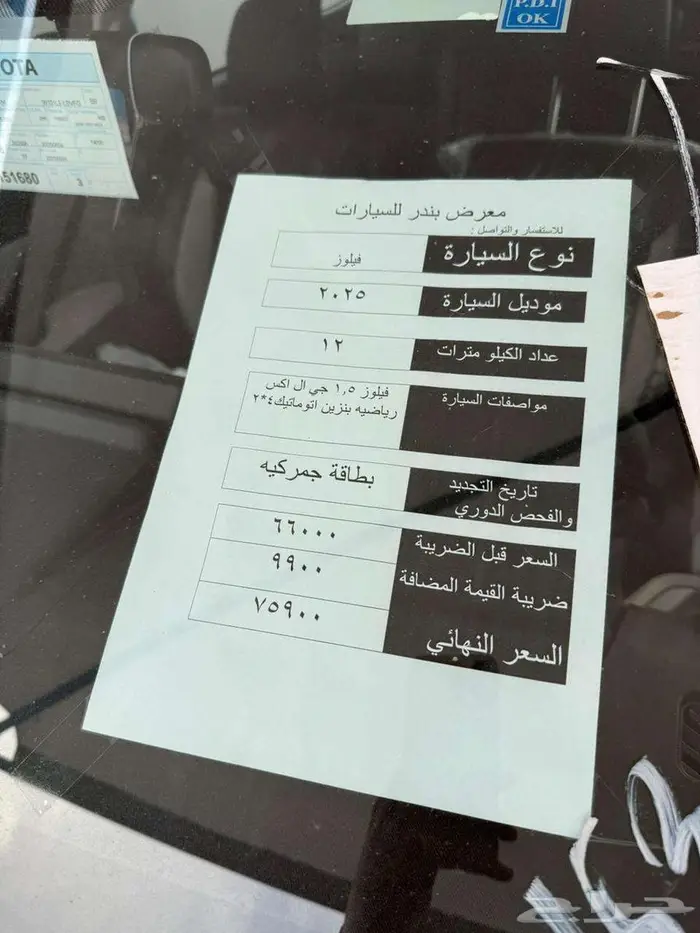 P.D.I
OK
OTA
51680
معرض بندر للسيارات
للاستفسار والتواصل :
نوع السيارة فيلوز
موديل السيارة ٢٠٢٥
عداد الكيلو مترات ١٢
مواصفات السيارة فيلوز ١,٥ جي ال اكس
رياضيه بنزين اتوماتيك٤*٢
تاريخ التجديد بطاقة جمركيه
والفحص الدوري
السعر قبل الضريبة ٦٦٠٠٠
ضريبة القيمة المضافة ٩٩٠٠
السعر النهائي ٧٥٩٠٠
حراج